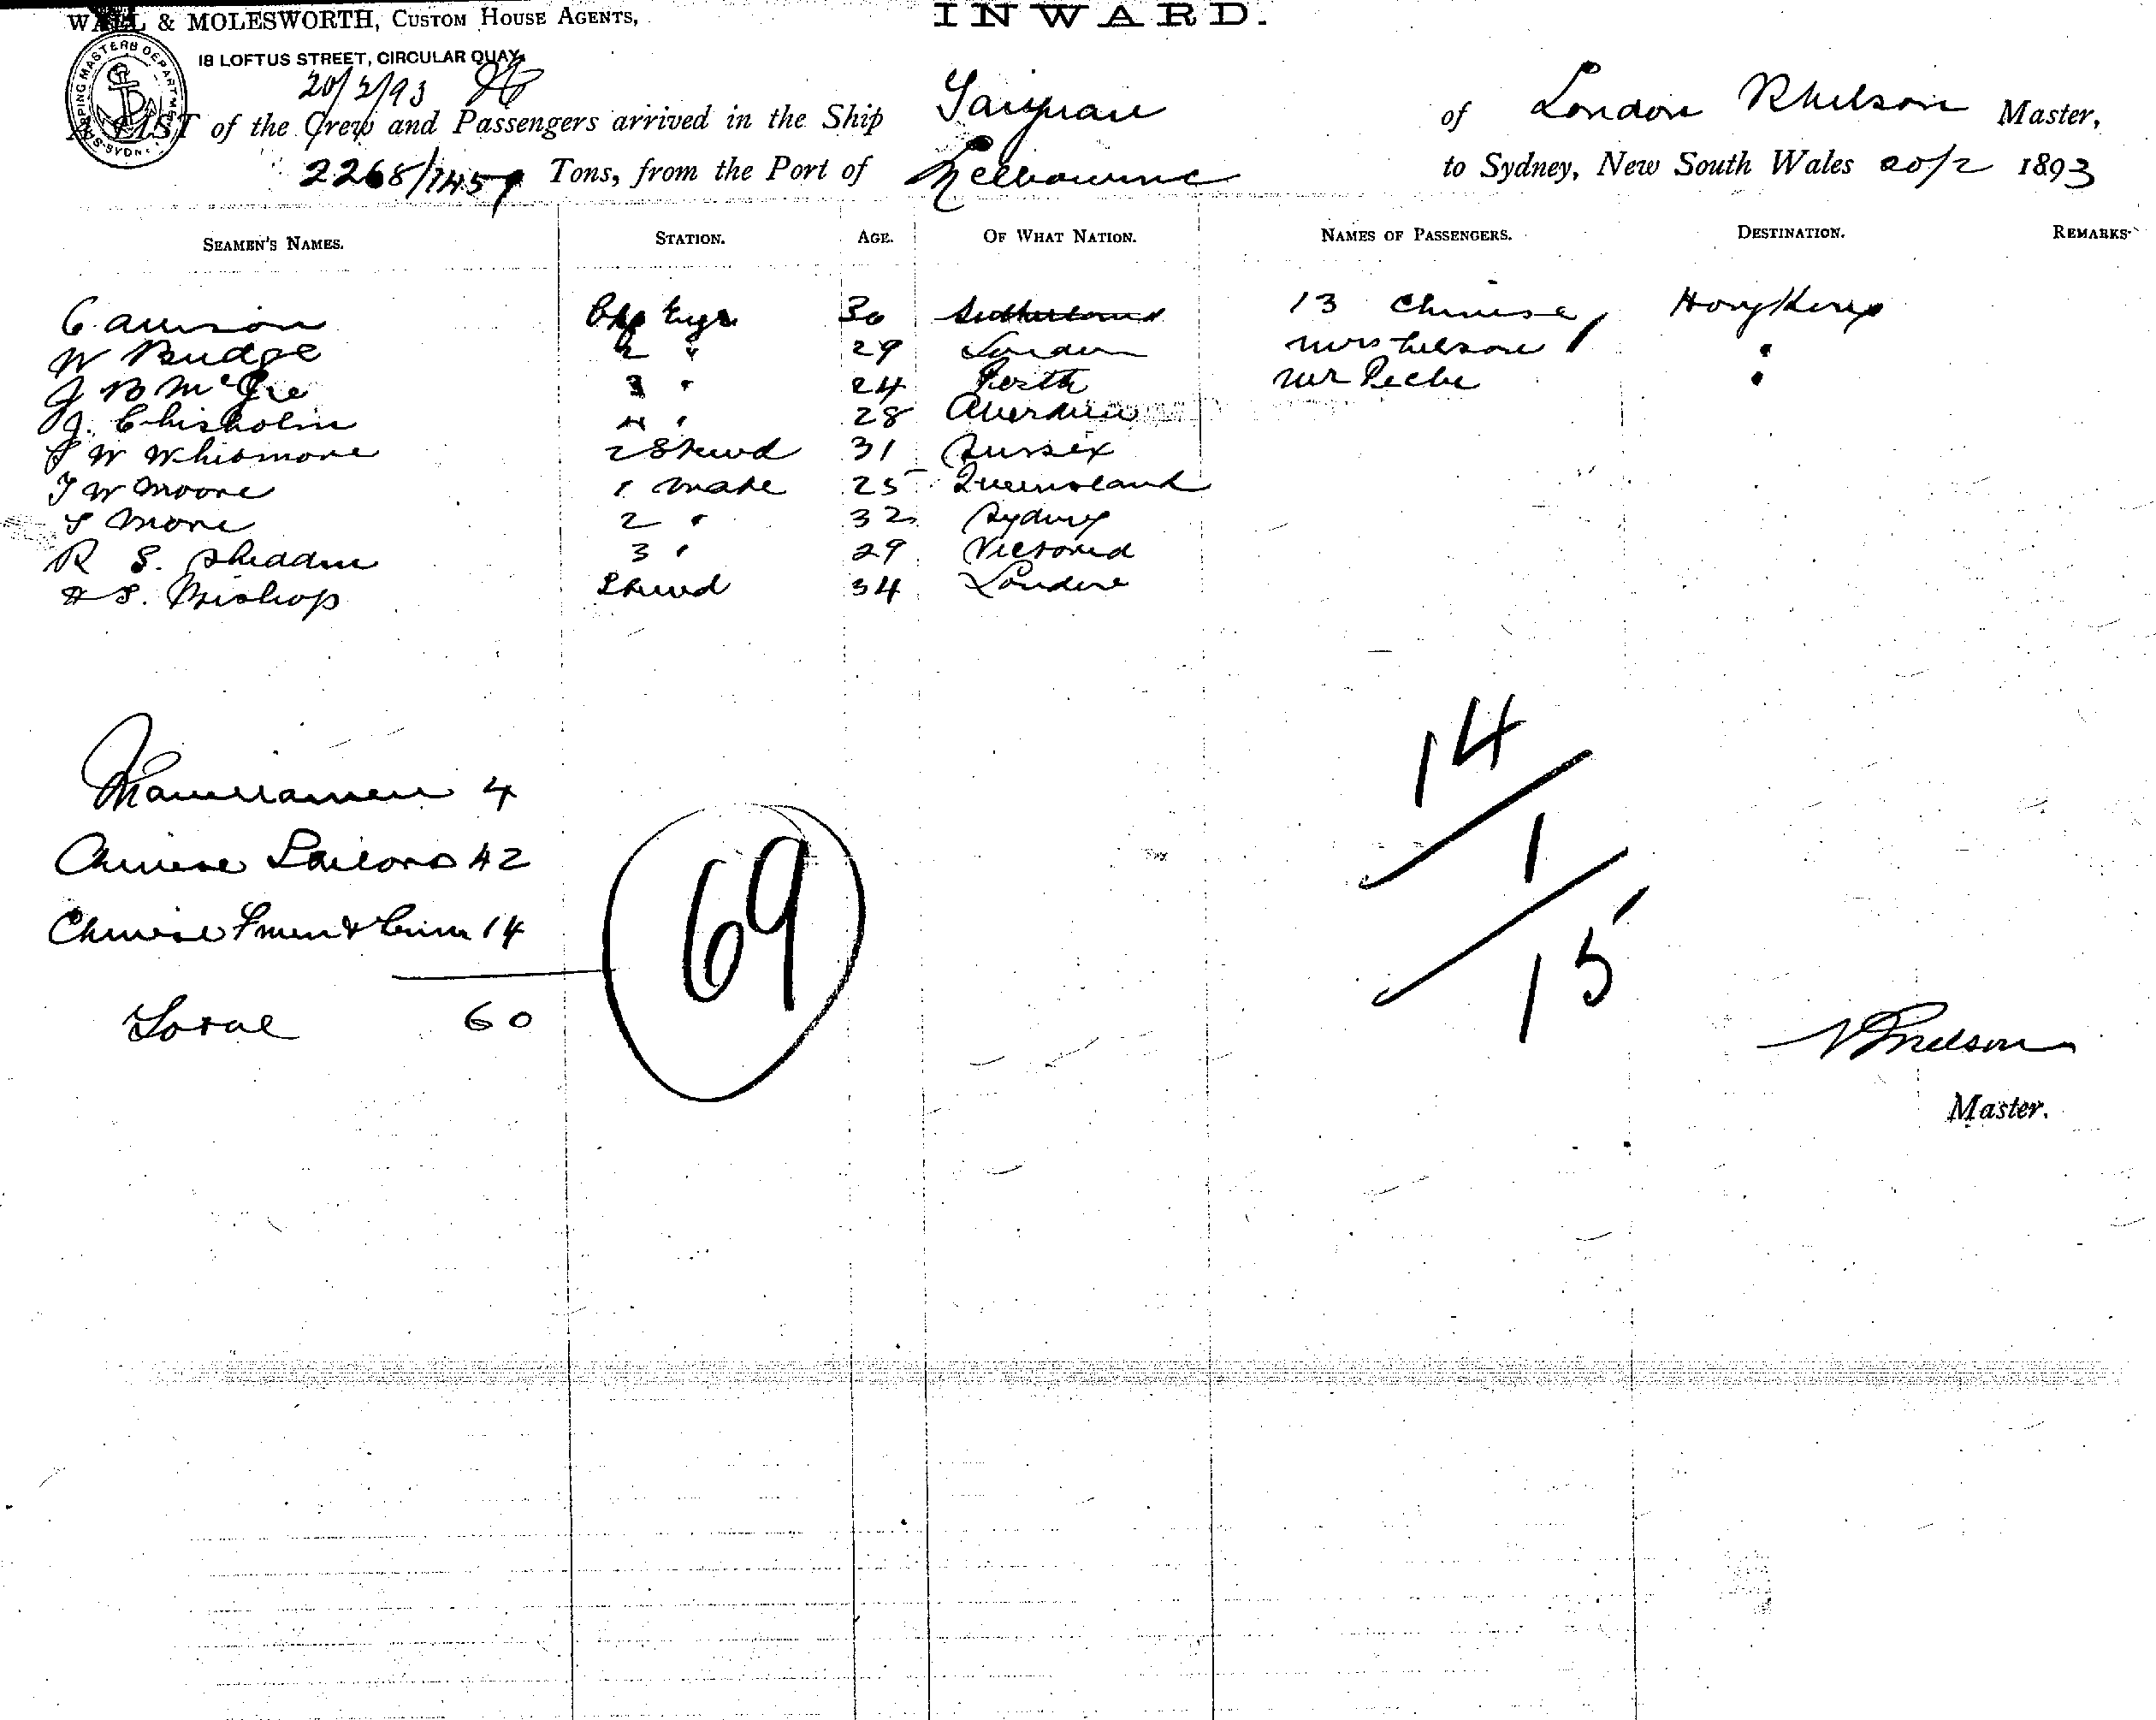 WALL & MOLESWORTH, CUSTOM HOUSE AGENTS,
INWARD.
18 LOFTUS STREET, CIRCULAR QUAY.
SHIPPING MASTERS DEPARTMENT SYDN
20/2/93
A LIST of the Crew and Passengers arrived in the Ship Taiyuan of London R Nelson Master,
2268/1459 Tons, from the Port of Melbourne to Sydney, New South Wales 20/2 1893
SEAMEN'S NAMES. STATION. AGE. OF WHAT NATION. NAMES OF PASSENGERS. DESTINATION. REMARKS.
30 Sutherland 13 Chinese Hong Kong
W Budge 2 " 29 London Mrs Nelson "
J B 3 " 24 Perth Mr "
J. Chisholm 4 " 28 Aberdeen
W Whismore 2 Stewd 31 Sussex
T W Moore 1 Mate 25 Queensland
S More 2 " 32 Sydney
R S. Sheaddm 3 " 29 Victoria
S. Bishop Stewd 34 London
14
4
Chinese Sailors 42
69
1
Chinese 14
15
Total 60
Nelson
Master.